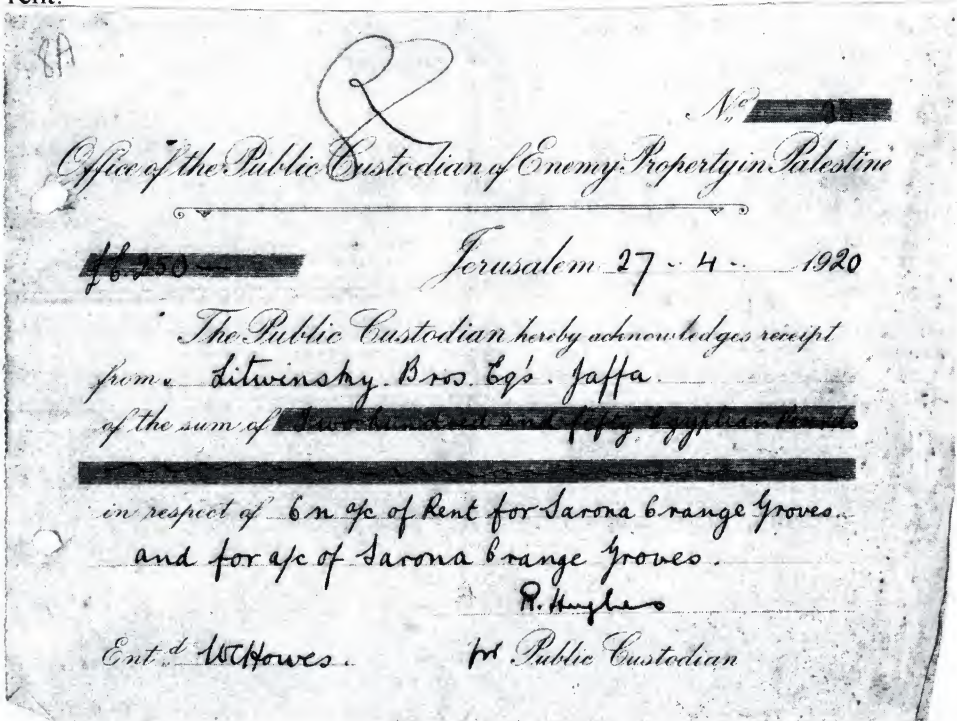 rent.
8A
No
Office of the Public Custodian of Enemy Property in Palestine
£E.250—
Jerusalem 27 - 4 - 1920
The Public Custodian hereby acknowledges receipt
from Litwinsky. Bros. Eqs. Jaffa.
of the sum of Two hundred and fifty Egyptian Pounds
in respect of On a/c of Rent for Sarona Orange Groves.
and for a/c of Sarona Orange Groves.
R. Hughes
Ent.d WCHowes. for Public Custodian